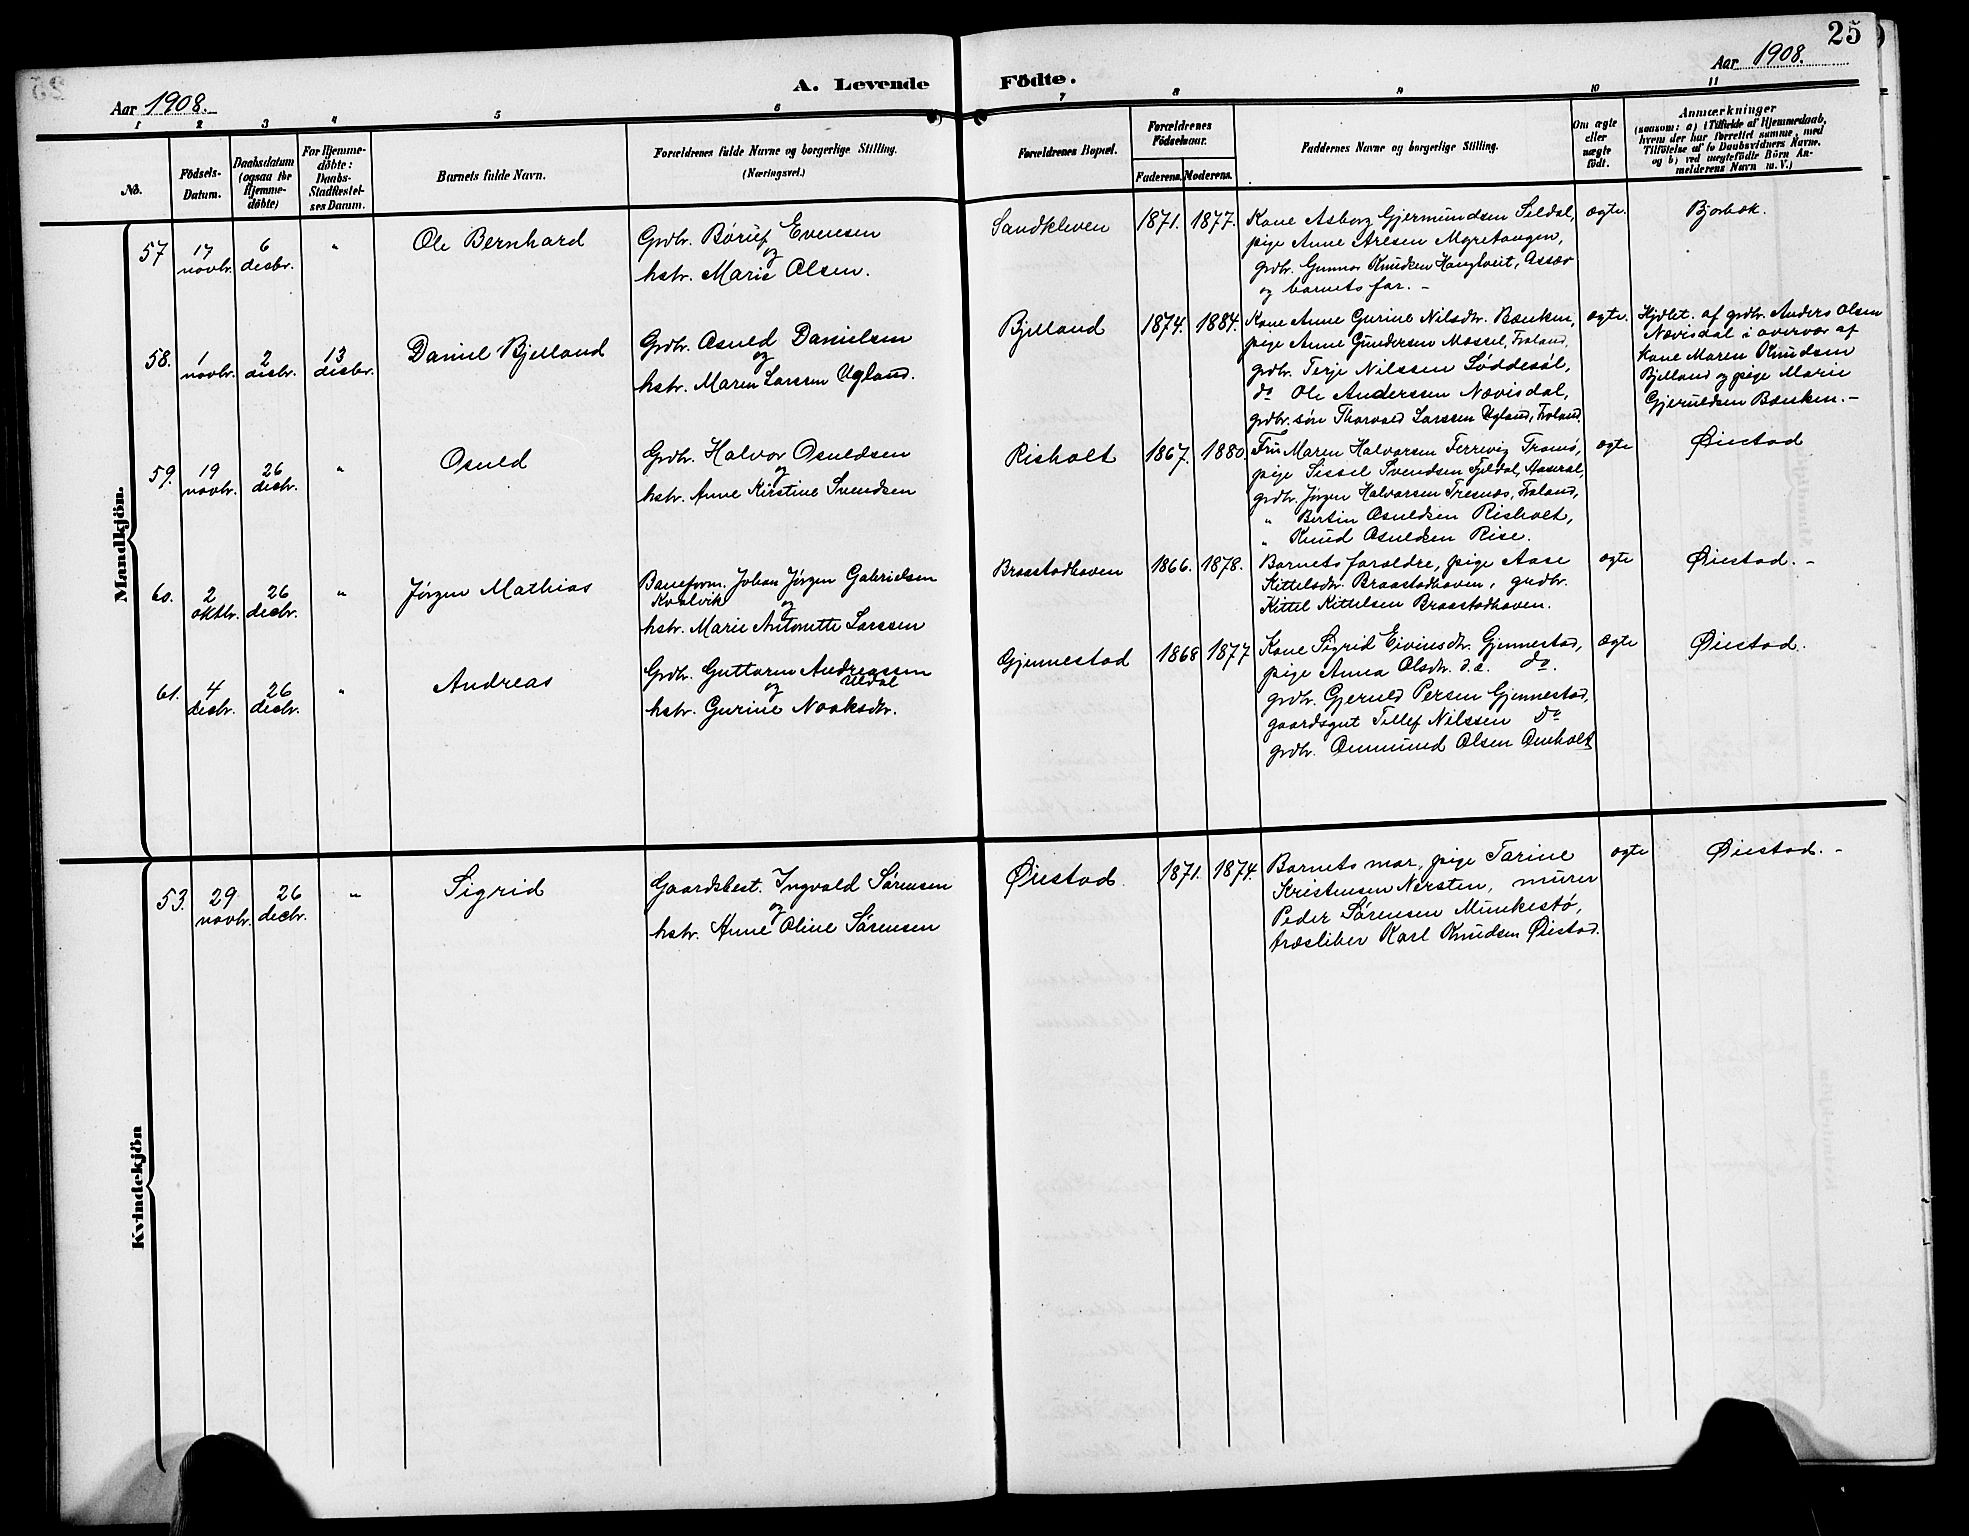 25
Aar 1908.
A. Levende
Födte.
Aar 1908.
1 2 3 4 5 6 7 8 9 10 11
No.
Födsels-
Datum.
Daabsdatum
(ogsaa for
Hjemme-
döbte)
For Hjemme-
döbte:
Daabs-
Stadfæstel-
ses Datum.
Barnets fulde Navn.
Forældrenes fulde Navne og borgerlige Stilling.
(Næringsvei.)
Forældrenes Bopæl.
Forældrenes
Födselsaar.
Faderens. Moderens.
Faddernes Navne og borgerlige Stilling.
Om ægte
eller
uægte
född.
Anmærkninger
(saasom: a) i Tilfælde af Hjemmedaab,
hvem der har forrettet samme, med
Tilföielse af to Daabsvidners Navne,
og b) ved uægtefödte Börn An-
melderens Navn m. V.)
Mandkjön.
57
17
novbr.
6
decbr.
"
Ole Bernhard
Grdbr. Børuf Evensen
og
hstr. Marie Olsen.
Sandkleven
1871. 1877.
Kone Asborg Gjermundsen Seldal,
pige Anne Aresen Myretangen,
grdbr. Gunnar Knudsen Haugtveit,
og barnets far. -
ægte.
Bjorbæk.
58.
1
novbr.
2
decbr.
13
decbr.
Daniel Bjelland
Grdbr. Osuld Danielsen
og
hstr. Maren Larssen Ugland.
Bjelland
1874. 1884.
Kone Anne Gurine Nilsdtr. Bænken,
pige Anne Gundersen Messel, Froland,
grdbr. Terje Nilssen Løddesøl,
do Ole Anderssen Nævisdal,
grdbr. søn Thorvald Larssen Ugland, Froland.
ægte.
Hjdbt. af grdbr. Anders Olsen
Nævisdal i overvær af
kone Maren Knudsen
Bjelland og pige Marie
Gjeruldsen Bænken. -
59.
19
novbr.
26
decbr.
"
Osuld
Grdbr. Halvor Osuldsen
og
hstr. Anne Kirstine Svendsen
Risholt
1867. 1880
Fru Maren Halvorsen Færevig Tromø,
pige Sissel Svendsen Fjeldal, Aaseral,
grdbr. Jørgen Halvorsen Tresnæs, Froland,
" Bertin Osuldsen Risholt,
" Knud Osuldsen Rise.
ægte
Øiestad
60.
2
oktbr.
26
decbr.
"
Jørgen Mathias
Baneform. Johan Jørgen Gabrielsen
Kvalvik og
hstr. Marie Antonette Larssen
Braastadhaven
1866. 1878.
Barnets forældre, pige Aase
Kittelsdtr. Braastadhaven, grdbr.
Kittel Kittelsen Braastadhaven.
ægte
Øiestad. -
61.
4
decbr.
26
decbr.
"
Andreas
Grdbr. Guttorm Andreassen
og Uldal
hstr. Gurine Noaksdtr.
Gjennestad
1868 1877
Kone Sigrid Eivindsdtr. Gjennestad,
pige Anna Olsdtr. d.æ. do.
grdbr. Gjeruld Persen Gjennestad,
gaardsgut Tellef Nilssen do
grdbr. Ommund Olsen Omholt
Ægte
Øiestad.
Kvindekjön
53.
29
novbr.
26
decbr.
"
Sigrid
Gaardsbest. Ingvald Sørensen
og
hstr. Anne Oline Sørensen
Øiestad.
1871. 1874.
Barnets mor, pige Tarine
Kristensen Nersten, murer
Peder Sørensen Munkestø,
træsliber Karl Knudsen Øiestad.
ægte
Øiestad. -